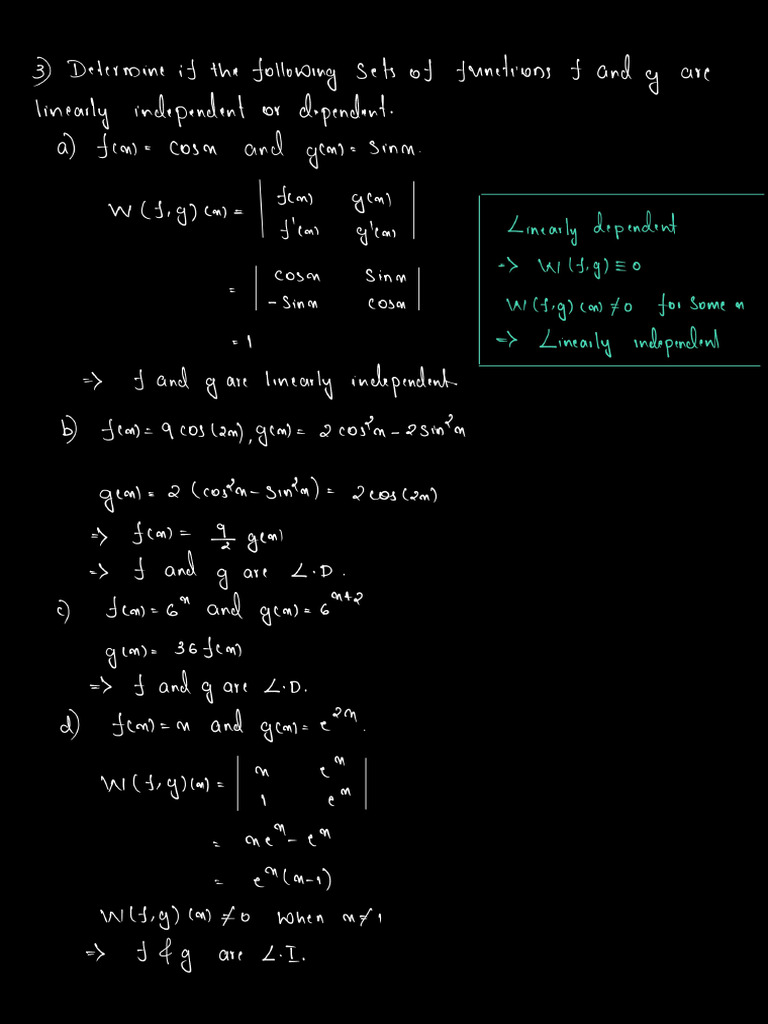 3) Determine if the following sets of functions f and g are
linearly independent or dependent.
a) f(x) = cosx and g(x) = sinx.
W(f,g)(x) = | f(x) g(x) |
| f'(x) g'(x) |
= | cosx sinx |
| -sinx cosx |
= 1
=> f and g are linearly independent
Linearly dependent
=> W(f,g) ≡ 0
W(f,g)(x) ≠ 0 for some x
=> Linearly independent
b) f(x) = 9 cos(2x), g(x) = 2cos²x - 2sin²x
g(x) = 2 (cos²x - sin²x) = 2cos(2x)
=> f(x) = 9/2 g(x)
=> f and g are L.D.
c) f(x) = 6^x and g(x) = 6^(x+2)
g(x) = 36 f(x)
=> f and g are L.D.
d) f(x) = x and g(x) = e^(2x).
W(f,g)(x) = | x e^x |
| 1 e^x |
= xe^x - e^x
= e^x(x-1)
W(f,g)(x) ≠ 0 when x ≠ 1
=> f & g are L.I.